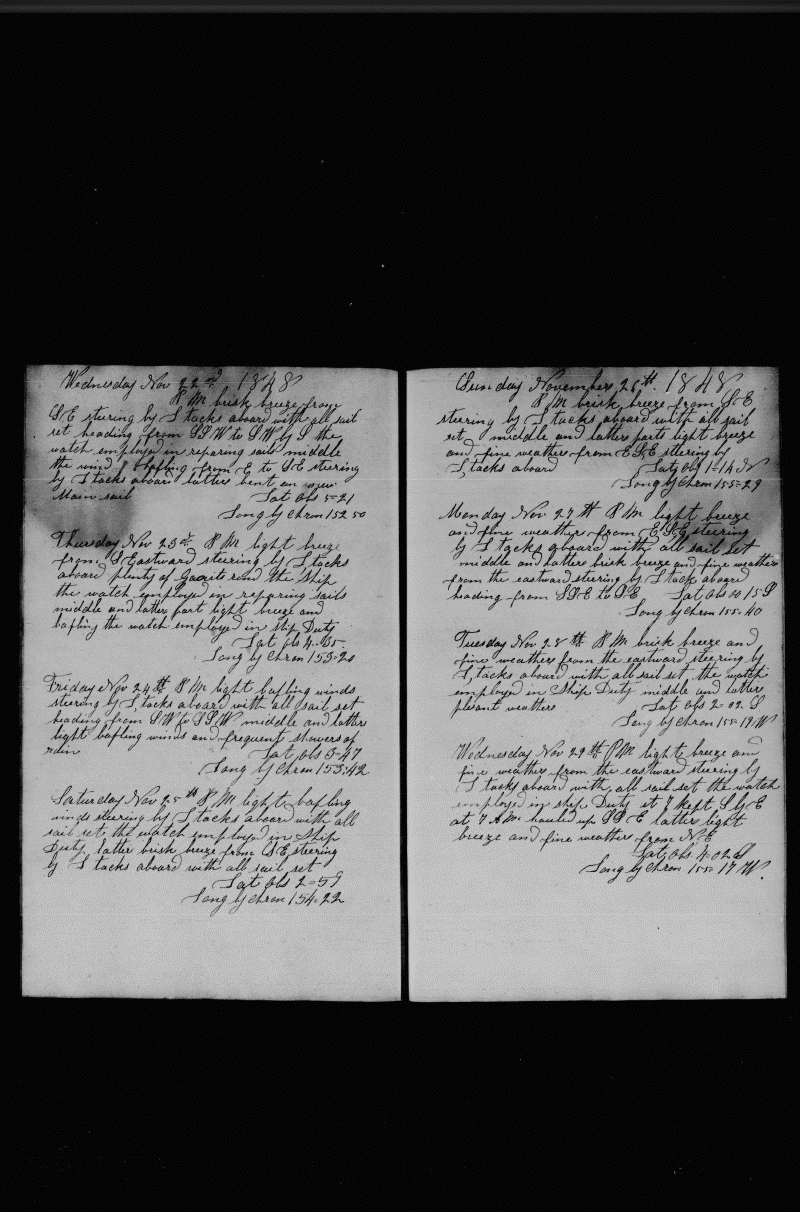 Wednesday Nov 22nd 1848
P M brisk breeze from
S.E steering by L tacks aboard with all sail
set heading from SSW to SW by S the
watch employd in reparing sails middle
the wind bafling from E to SE steering
by L tacks aboard latter bent an new
Main sail Lat Obs 5=21
Long by Chron 152 50
Thursday Nov 23d P M light breeze
from SEastward steering by L tacks
aboard plenty of round the Ship
the watch employed in reparing sails
middle and latter part light breeze and
bafling the watch employed in Ship Duty
Lat obs
Long by Chron 153=20
Friday Nov 24th P M light bafling winds
steering by L, tacks aboard with all sail set
heading from SW to SSW middle and latter
light bafling winds and frequent showers of
rain Lat obs 3=47
Long by Chron 153:42
Saturday Nov 25th P M light bafling
winds steering by L tacks aboard with all
sail set the watch employd in Ship
Duty, latter brisk breeze from SE, steering
by L tacks aboard with all sail set
Lat Obs 2=59
Long by Chron 154=22
Sunday November 26th. 1848
P M brisk breeze from S.E
steering by L, tacks, aboard with all sail
set middle and latter parts light breeze
and fine weather from ESE steering by
L, tacks aboard Lat, Obs 1=14
Long by Chron 155=29
Monday Nov 27th P M light breeze
and fine weather from E.S.E steering
by L tacks aboard with all sail set
middle and latter brisk breeze and fine weather
from the eastward steering by L tack aboard
heading from to Lat obs 00 15 S
Long by Chron 155=40
Tuesday Nov 28th P M brisk breeze and
fine weather from the eastward steering by
L, tacks aboard with all sail set, the watch
employed in Ship Duty middle and latter
plesant weather Lat obs 2=02 S
Long by Chron 155=19 W
Wednesday Nov 29th P.M light breeze and
fine weather from the eastward steering by
L tacks aboard with, all sail set the watch
employed in ship Duty at 7 kept S by E
at 7 A M hauled up latter light
breeze and fine weather from N.E
Lat Obs 4=02 S
Long by Chron 155=17 W.